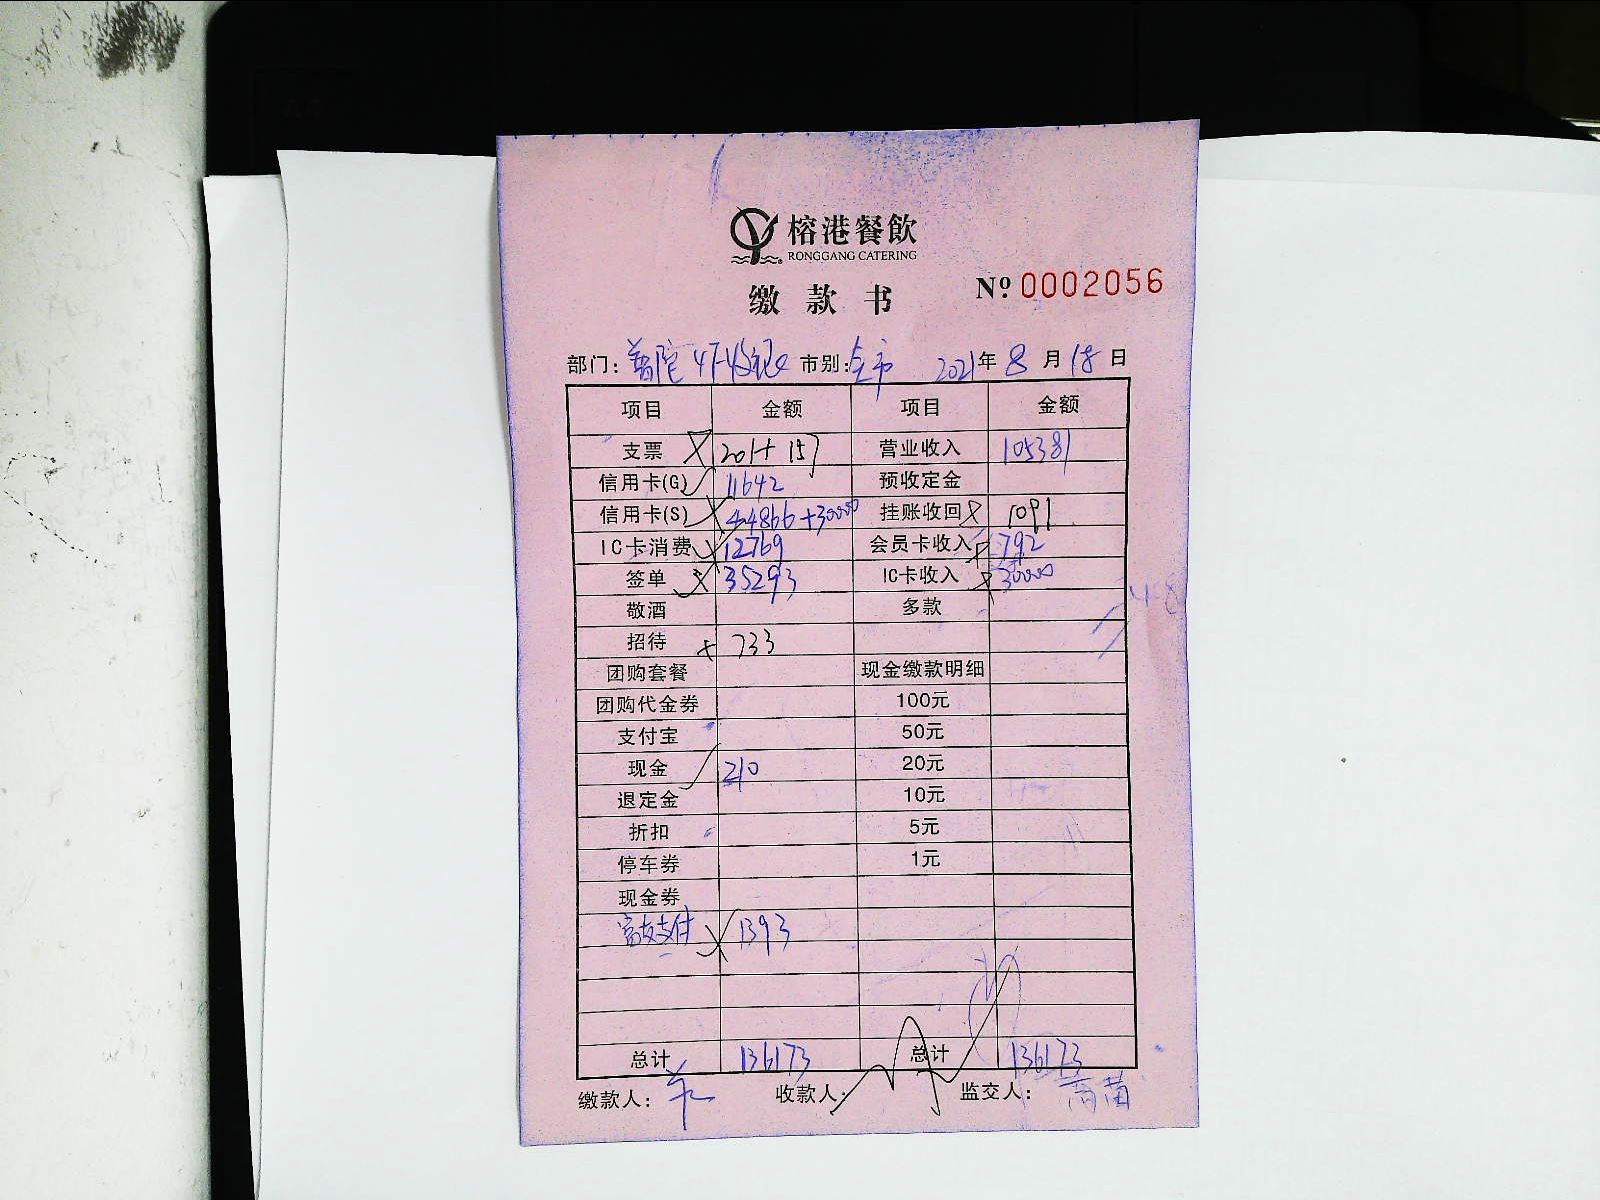 榕港餐飲
RONGGANG CATERING
缴款书 Nº 0002056
部门：普陀4F收银 市别：全市 2021年8月18日
项目 金额 项目 金额
支票 201+157 营业收入 105381
信用卡(G) 11642 预收定金
信用卡(S) 44866+30000 挂账收回 1091
IC卡消费 12769 会员卡收入 792
签单 35293 IC卡收入 30000
敬酒 多款
招待 733
团购套餐 现金缴款明细
团购代金券 100元
支付宝 50元
现金 210 20元
退定金 10元
折扣 5元
停车券 1元
现金券
支付 1393
总计 136173 总计 136173
缴款人： 收款人： 监交人：